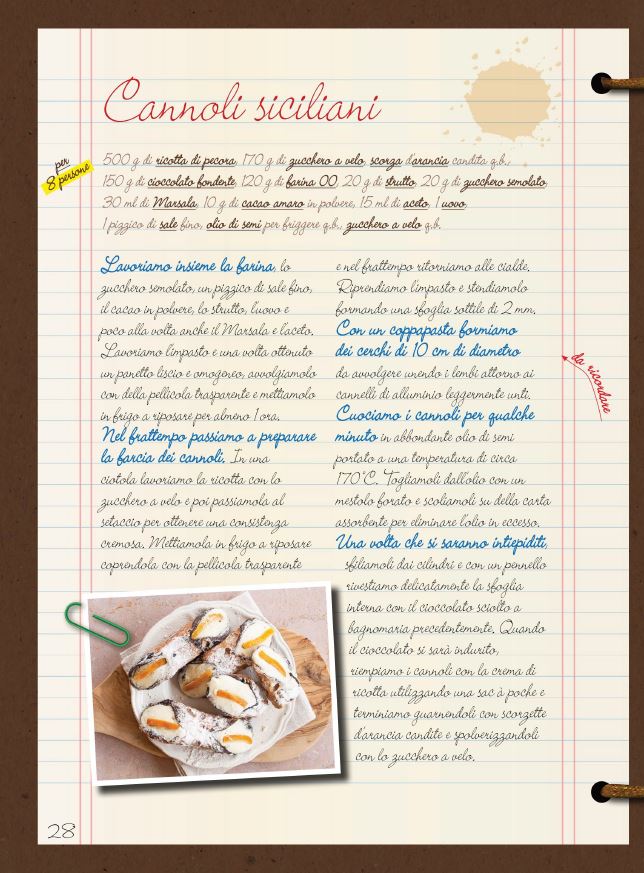 Cannoli siciliani
per
8 persone
500 g di ricotta di pecora, 170 g di zucchero a velo, scorza d'arancia candita q.b.,
150 g di cioccolato fondente, 120 g di farina 00, 20 g di strutto, 20 g di zucchero semolato,
30 ml di Marsala, 10 g di cacao amaro in polvere, 15 ml di aceto, 1 uovo,
1 pizzico di sale fino, olio di semi per friggere q.b., zucchero a velo q.b.
Lavoriamo insieme la farina, lo
zucchero semolato, un pizzico di sale fino,
il cacao in polvere, lo strutto, l'uovo e
poco alla volta anche il Marsala e l'aceto.
Lavoriamo l'impasto e una volta ottenuto
un panetto liscio e omogeneo, avvolgiamolo
con della pellicola trasparente e mettiamolo
in frigo a riposare per almeno 1 ora.
Nel frattempo passiamo a preparare
la farcia dei cannoli. In una
ciotola lavoriamo la ricotta con lo
zucchero a velo e poi passiamola al
setaccio per ottenere una consistenza
cremosa. Mettiamola in frigo a riposare
coprendola con la pellicola trasparente
e nel frattempo ritorniamo alle cialde.
Riprendiamo l'impasto e stendiamolo
formando una sfoglia sottile di 2 mm.
Con un coppapasta formiamo
dei cerchi di 10 cm di diametro
da avvolgere unendo i lembi attorno ai
cannelli di alluminio leggermente unti.
Cuociamo i cannoli per qualche
minuto in abbondante olio di semi
portato a una temperatura di circa
170°C. Togliamoli dall'olio con un
mestolo forato e scoliamoli su della carta
assorbente per eliminare l'olio in eccesso.
Una volta che si saranno intiepiditi,
sfiliamoli dai cilindri e con un pennello
rivestiamo delicatamente la sfoglia
interna con il cioccolato sciolto a
bagnomaria precedentemente. Quando
il cioccolato si sarà indurito,
riempiamo i cannoli con la crema di
ricotta utilizzando una sac à poche e
terminiamo guarnendoli con scorzette
d'arancia candite e spolverizzandoli
con lo zucchero a velo.
da ricordare
28